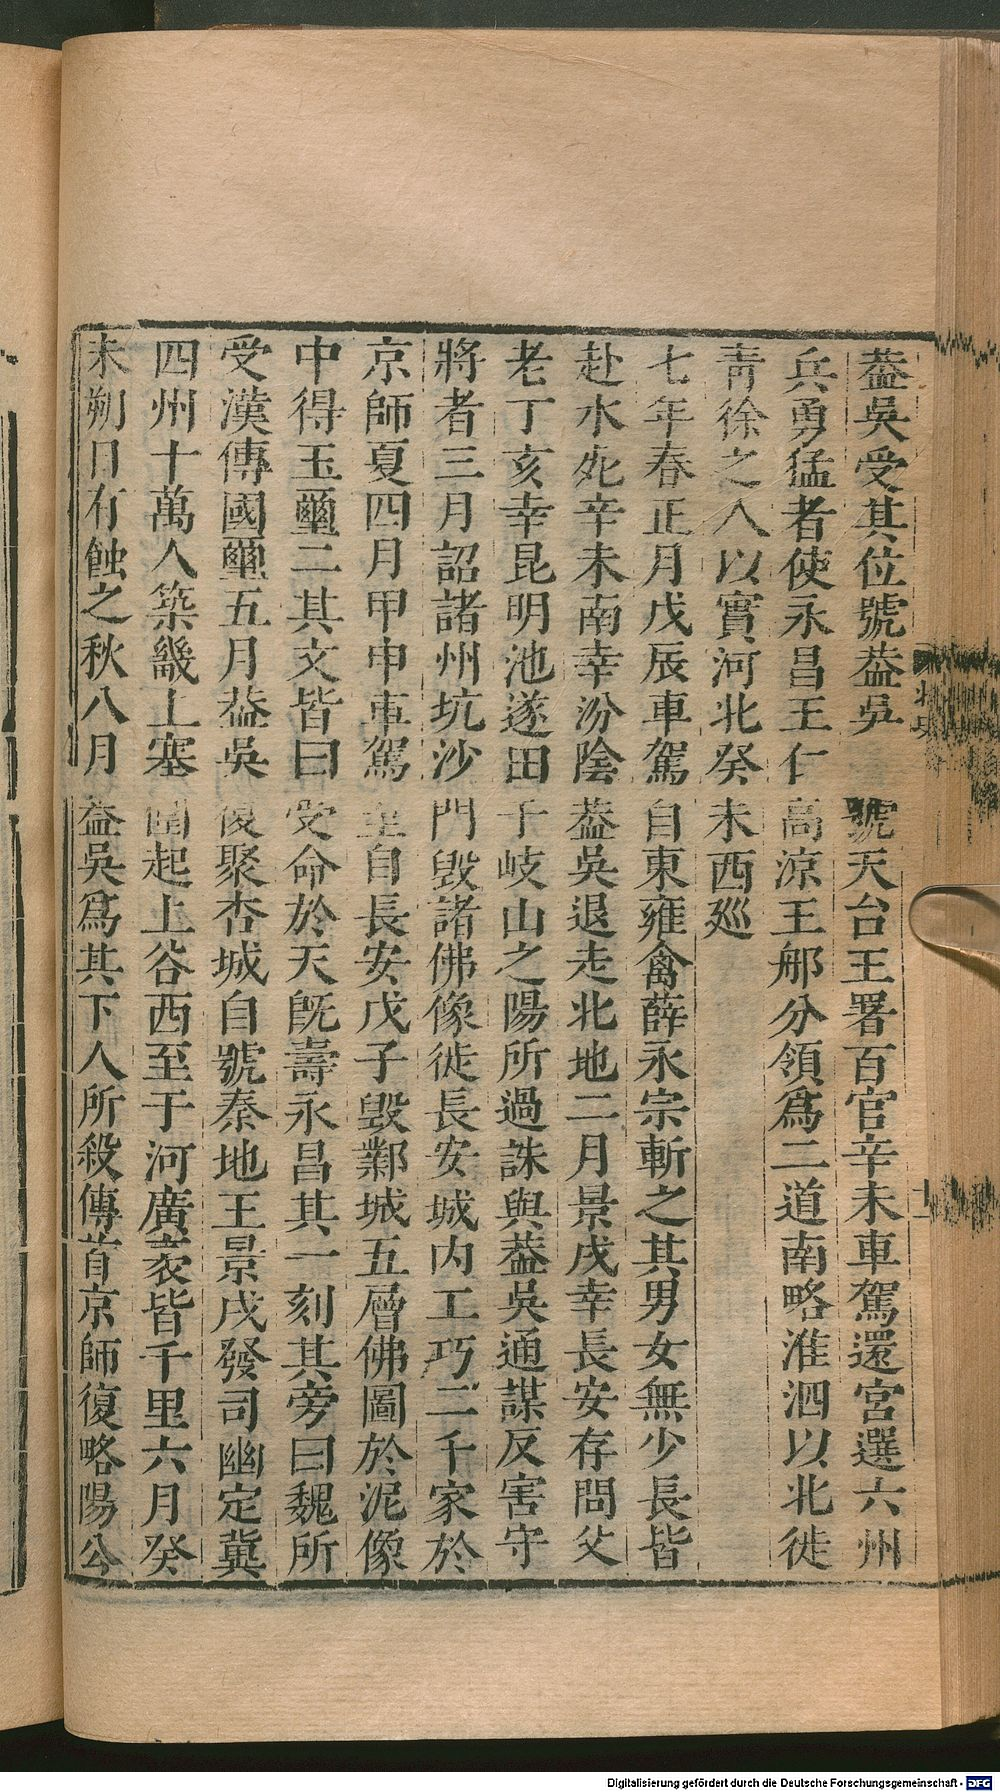 葢吳受其位號葢吳　號天台王署百官辛未車駕還宮選六州
兵勇猛者使永昌王仁高涼王那分領爲二道南略淮泗以北徙
靑徐之人以實河北癸未西廵
七年春正月戊辰車駕自東雍禽薛永宗斬之其男女無少長皆
赴水死辛未南幸汾陰葢吳退走北地二月景戌幸長安存問父
老丁亥幸昆明池遂田于岐山之陽所過誅與葢吳通謀反害守
將者三月詔諸州坑沙門毀諸佛像徙長安城内工巧二千家於
京師夏四月甲申車駕至自長安戊子毀鄴城五層佛圖於泥像
中得玉璽二其文皆曰受命於天旣壽永昌其一刻其旁曰魏所
受漢傳國璽五月葢吳復聚杏城自號秦地王景戌發司幽定冀
四州十萬人築畿上塞圍起上谷西至于河廣袤皆千里六月癸
未朔日有蝕之秋八月葢吳爲其下人所殺傳首京師復略陽公
Digitalisierung gefördert durch die Deutsche Forschungsgemeinschaft - DFG